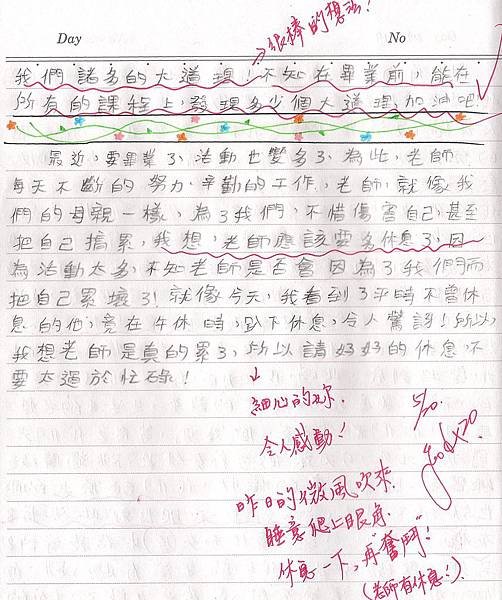 →很棒的想法!
Day
No
我們諸多的大道理!不知在畢業前,能在
所有的課程上,發現多少個大道理,加油吧!
最近,要畢業了,活動也變多了,為此,老師
每天不斷的努力、辛勤的工作,老師,就像我
們的母親一樣,為了我們,不惜傷害自己,甚至
把自己搞累,我想,老師應該要多休息了,因
為活動太多,不知老師是否會因為了我們而
把自己累壞了!就像今天,我看到了平時不曾休
息的他,竟在午休時,趴下休息,令人驚訝!所以,
我想老師是真的累了,所以請好好的休息,不
要太過於忙碌!
細心的妳.
令人感動!
5/20.
good x20
昨日的微風吹來.
睡意爬上眼角.
休息一下,再"奮鬥"!
(老師有休息!)